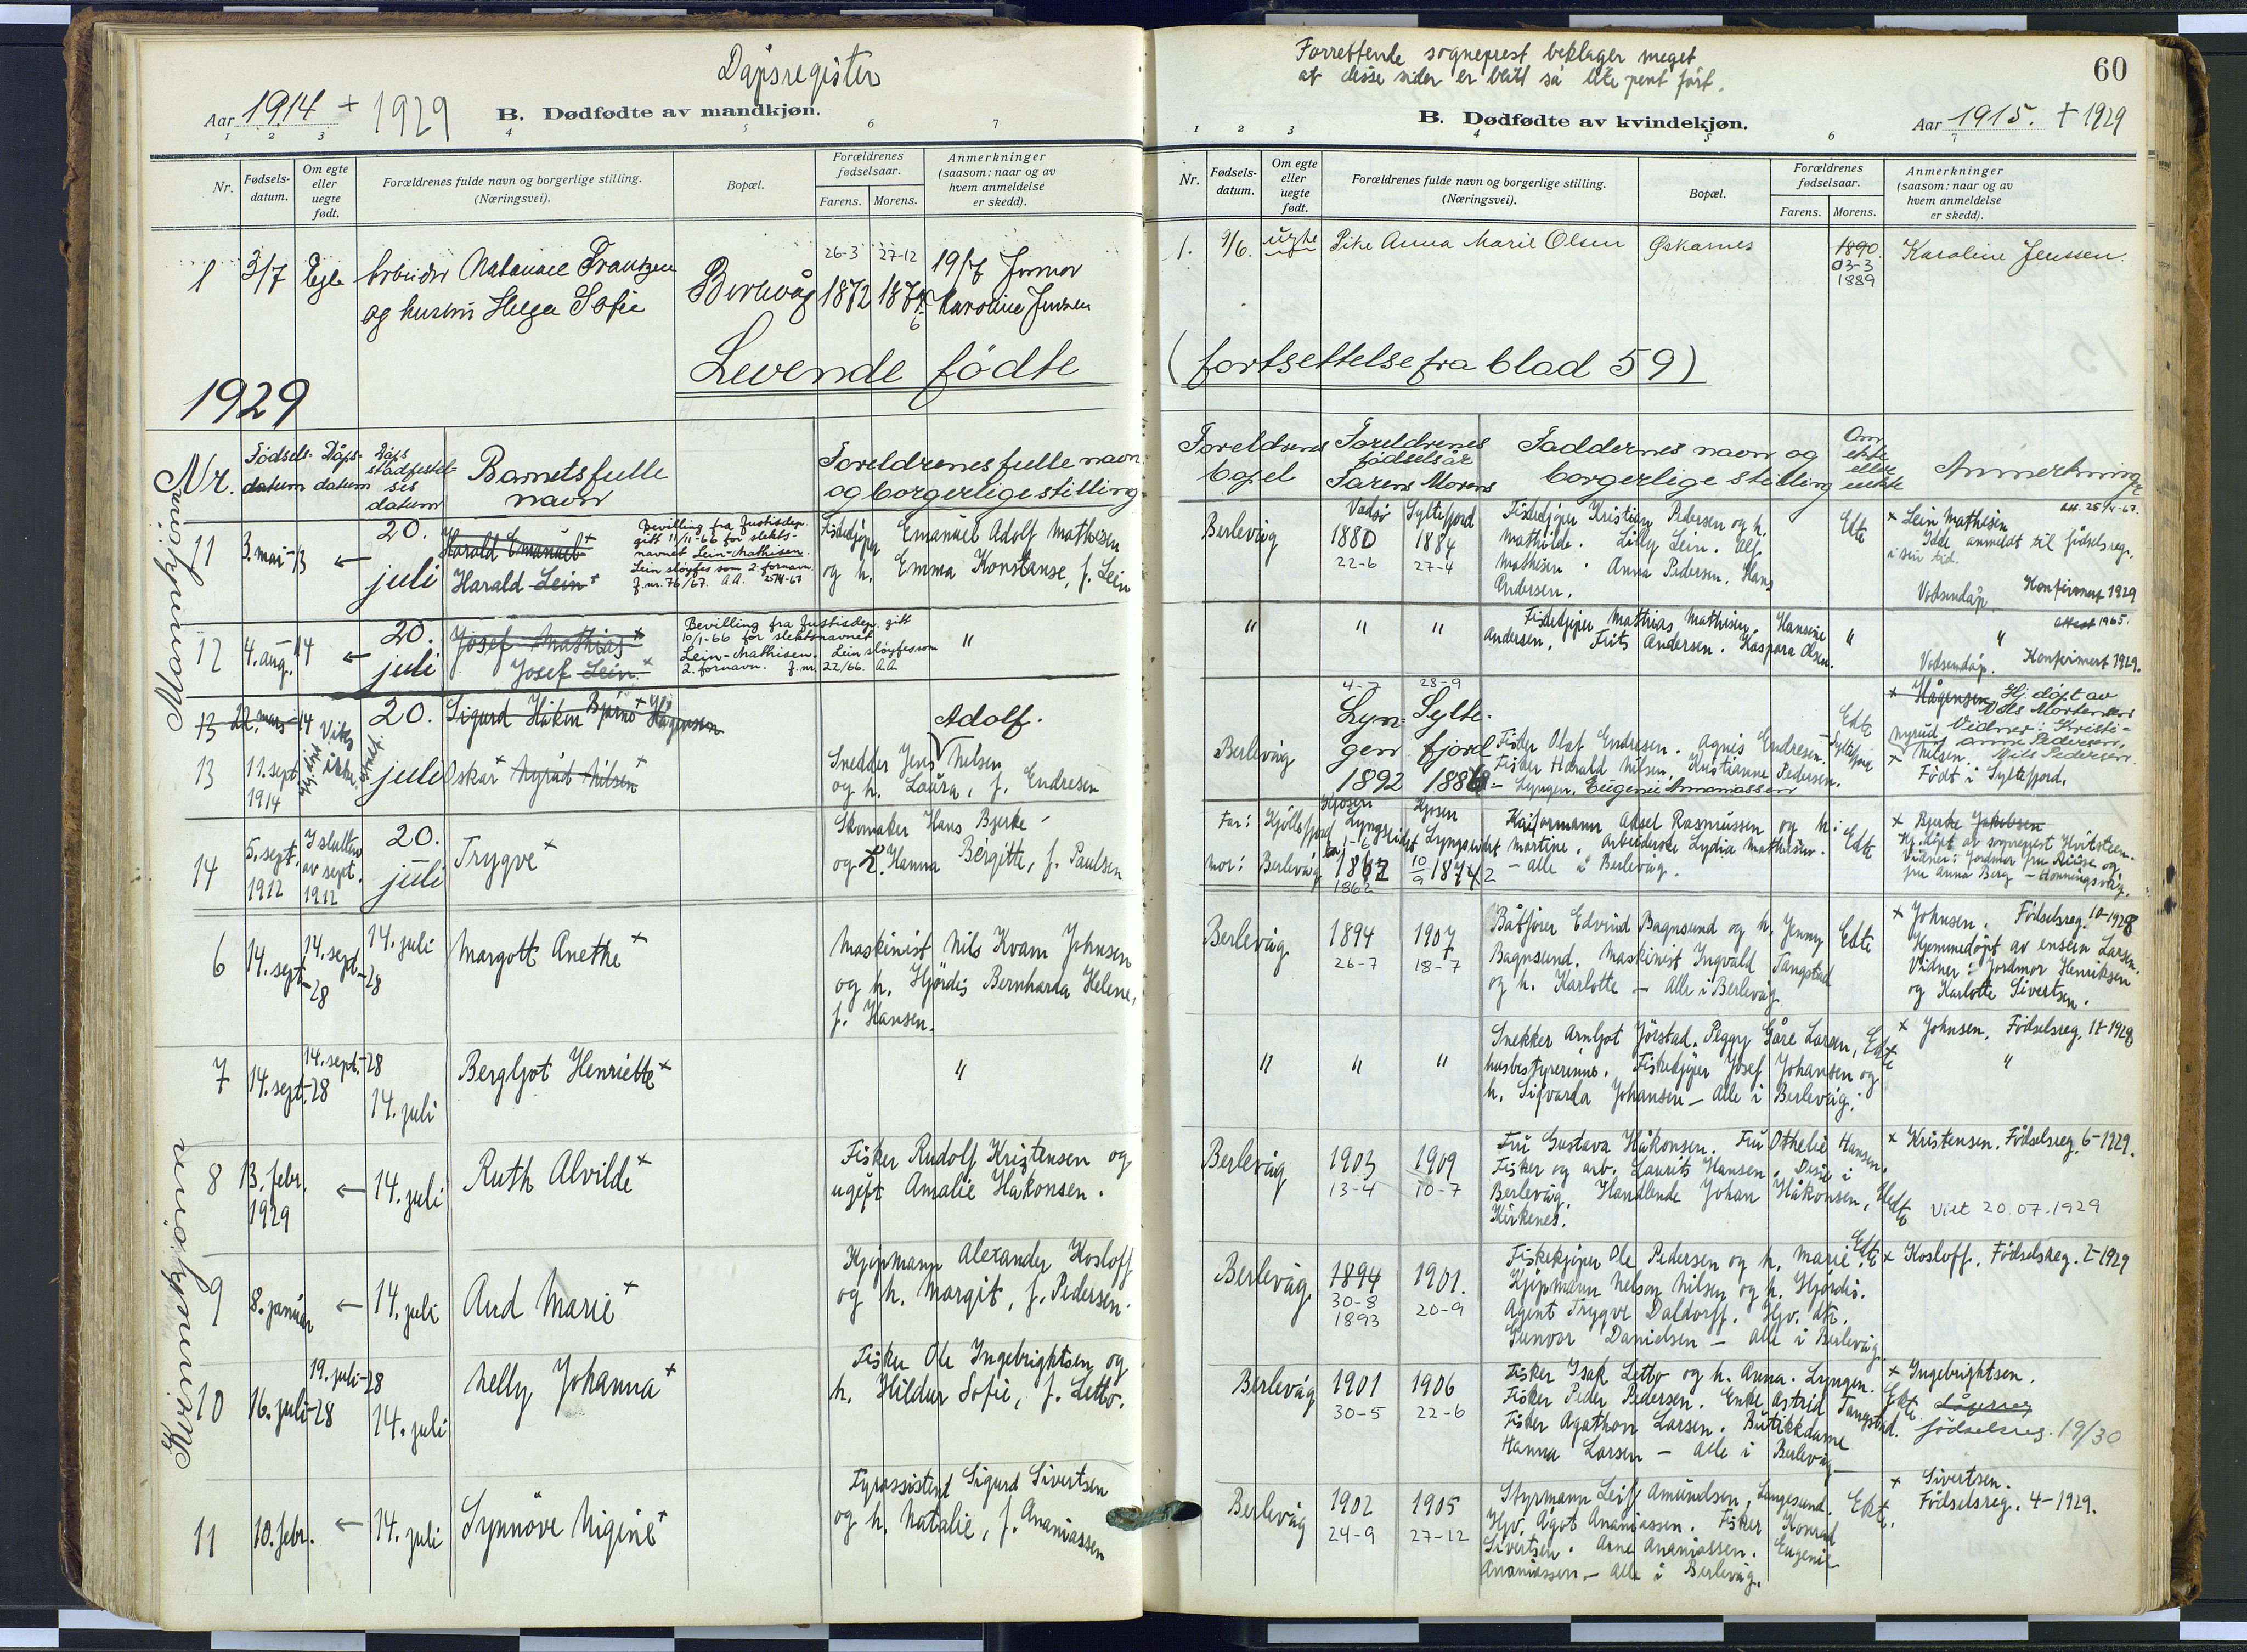 Dåpsregister
Aar 1914 + 1929
B. Dødfødte av mandkjøn.
1 2 3 4 5 6 7
Nr.
Fødsels-
datum.
Om egte
eller
uegte
født.
Forældrenes fulde navn og borgerlige stilling.
(Næringsvei).
Bopæl.
Forældrenes
fødselsaar.
Farens. Morens.
Anmerkninger
(saasom: naar og av
hvem anmeldelse
er skedd).
1 3/7 Egte
Arbeider Natanael Frantzen
og hustru Helga Sofie
Berlevåg
26-3 27-12
1872 1874
19/7 Jormor
Karoline Jensen
Levende fødte
1929
Mannkjønn
Nr.
Fødsels-
datum
Dåps-
datum
Dåps
stadfestel-
ses
datum
Barnets fulle
navn
Foreldrenes fulle navn
og borgerlige stilling
11 3. mai-13 ← 20. juli
Harald Emanuel +
Harald Lein +
Bevilling fra Justisdep.
gitt 11/11-66 for slekts-
navnet Lein-Mathisen.
Lein sløyfes som 2. fornavn.
J.nr. 76/67. A.A. 25/4-67
Fiskekjøper Emanuel Adolf Mathisen
og h. Emma Konstanse, f. Lein
12 4. aug.-14 ← 20. juli
Josef Mathias +
Josef Lein +
Bevilling fra Justisdep. gitt
10/1-66 for slektsnavnet
Lein-Mathisen. Lein sløyfes som
2. fornavn. J.nr. 22/66. A.A.
"
13 22. mars-14 20.
Sigurd Håken Bjarne + Hågensen
13 11. sept. 1914
Hj. døpt
Vites
ikke.
juli
Oskar + Nyrud Nilsen
Adolf.
Snedder Jens Nelsen
og h. Laura, f. Endresen
14 5. sept. 1912
I slutten
av sept.
1912
20. juli
Trygve +
Skomaker Hans Bjerke
og h. Hanna Bergitte, f. Paulsen
6 14. sept.-28 14. sept.-28 14. juli
Margott Anethe +
Maskinist Nils Kvam Johnsen
og h. Hjørdis Bernharda Helene,
f. Hansen.
7 14. sept.-28 14. sept.-28 14. juli
Bergljot Henriette +
"
Kvinnekjønn
8 13. febr. 1929 ← 14. juli
Ruth Alvilde +
Fisker Rudolf Kristensen og
ugift Amalie Håkonsen.
9 8. januar ← 14. juli
Aud Marie +
Kjøpmann Alexander Kosloff
og h. Margit, f. Pedersen.
10 16. juli-28 19. juli-28 14. juli
Nelly Johanna +
Fisker Ole Ingebrightsen og
h. Hildur Sofie, f. Letto.
11 10. febr. ← 14. juli
Synnöve Nigine +
Fyrassistent Sigurd Sivertsen
og h. Natalie, f. Ananiassen
Forrettende sogneprest beklager meget
at disse sider er blitt så lite pent ført.
60
B. Dødfødte av kvindekjøn.
Aar 1915. + 1929
1 2 3 4 5 6 7
Nr.
Fødsels-
datum.
Om egte
eller
uegte
født.
Forældrenes fulde navn og borgerlige stilling.
(Næringsvei).
Bopæl.
Forældrenes
fødselsaar.
Farens. Morens.
Anmerkninger
(saasom: naar og av
hvem anmeldelse
er skedd).
1. 9/6. uegte
Pike Anna Marie Olsen
Øskarnes
1890.
03-3
1889
Karoline Jenssen.
(fortsettelse fra blad 59)
Foreldrenes
bopel
Foreldrenes
fødselsår
Farens Morens
Faddernes navn og
borgerlige stilling
Om
ekte
eller
uekte
Anmerkninger
Berlevåg
Vadsö Syltefjord
1880 1884
22-6 27-4
Fiskekjøper Kristian Pedersen og h.
Mathilde. Lilly Lein. Ulf
Mathisen. Anna Pedersen. Hans
Andersen.
Ekte
+ Lein Mathisen
att. 25/4-67.
Ikke anmeldt til fødselsreg.
i sin tid.
Voksendåp. Konfirmert 1929
" " "
Fiskekjøper Mathias Mathisen. Hansine
Andersen, Frits Andersen. Kaspara Olsen.
"
Attest 1965.
"
Voksendåp. Konfirmert 1929.
Berlevåg
4-7 28-9
Lyn- Sylte-
gen fjord
1892 1886
Fisker Olaf Endresen. Agnes Endresen.
Fisker Harald Nilsen, Kristianne Pedersen.
– Lyngen. Eugenie Ananiassen
Ekte
Syltefjord
+ Hågensen Hj. døpt av
Nils Mortensen
Nyrud Vidner: Kristi-
anne Pedersen,
+ Nilsen. Nils Pedersen
Født i Syltefjord.
Far: Kjøllefjord
Mor: Berlevåg
Kjosen Kjosen
Lyngseidet Lyngseidet
1867 10/9 1874
1862
Kaiformann Aksel Rasmussen og h.
Martine. Arbeiderske Lydia Mathisen.
– alle i Berlevåg.
Ekte
+ Bjerke Jakobsen
Hj. døpt av sogneprest Hvitsteen.
Vidner: Jordmor fru Riise og
fru Anna Berg – Honningsvåg.
Berlevåg
1894 1907
26-7 18-7
Båtfører Edvind Bagnsund og h. Jenny
Bagnsund, Maskinist Ingvald Tangstad
og h. Karlotte – Alle i Berlevåg
Ekte
+ Johnsen. Fødselsreg. 10-1928
Hjemmedøpt av enslin Larsen.
Vidner: Jordmor Henriksen
og Karlotte Sivertsen.
" " "
Snekker Arnljot Jörstad. Peggy Gåre Larsen,
husbestyrerinne. Fiskekjøper Josef Johansen og
h. Sigvarda Johansen – Alle i Berlevåg.
Ekte
+ Johnsen, Fødselsreg. 11-1928
"
Berlevåg
1903 1909
13-4 10-7
Fru Gustava Håkonsen. Fru Othelie Hansen.
Fisker og arb. Laurits Hansen. Disse i
Berlevåg. Handlende Johan Håkonsen,
Kirkenes.
Uekte
+ Kristensen. Fødselsreg. 6-1929.
Viet 20.07.1929
Berlevåg
1894 1901.
30-8 20-9
1893
Fiskekjøper Ole Pedersen og h. Marie.
Kjøpmann Nelson Nilsen og h. Hjørdis.
Agent Trygve Daldorff. Hjv. dtr.
Gunvor Danielsen – Alle i Berlevåg.
Ekte
+ Kosloff. Fødselsreg. 2-1929
Berlevåg
1901 1906
30-5 22-6
Fisker Isak Letto og h. Anna. Lyngen.
Fisker Peder Pedersen. Enke Astrid Tangstad.
Fisker Agathon Larsen. Butikkdame
Hanna Larsen – Alle i Berlevåg
Ekte.
+ Ingebrightsen.
fødselsreg. 19/30
Berlevåg
1902 1905
24-9 27-12
Styrmann Leif Amundsen, Langesund.
Hjv. Ågot Ananiassen. Fisker Konrad
Sivertsen. Arne Ananiassen. Eugenie
Ananiassen. – Alle i Berlevåg.
Ekte.
+ Sivertsen.
Fødselsreg. 4-1929.